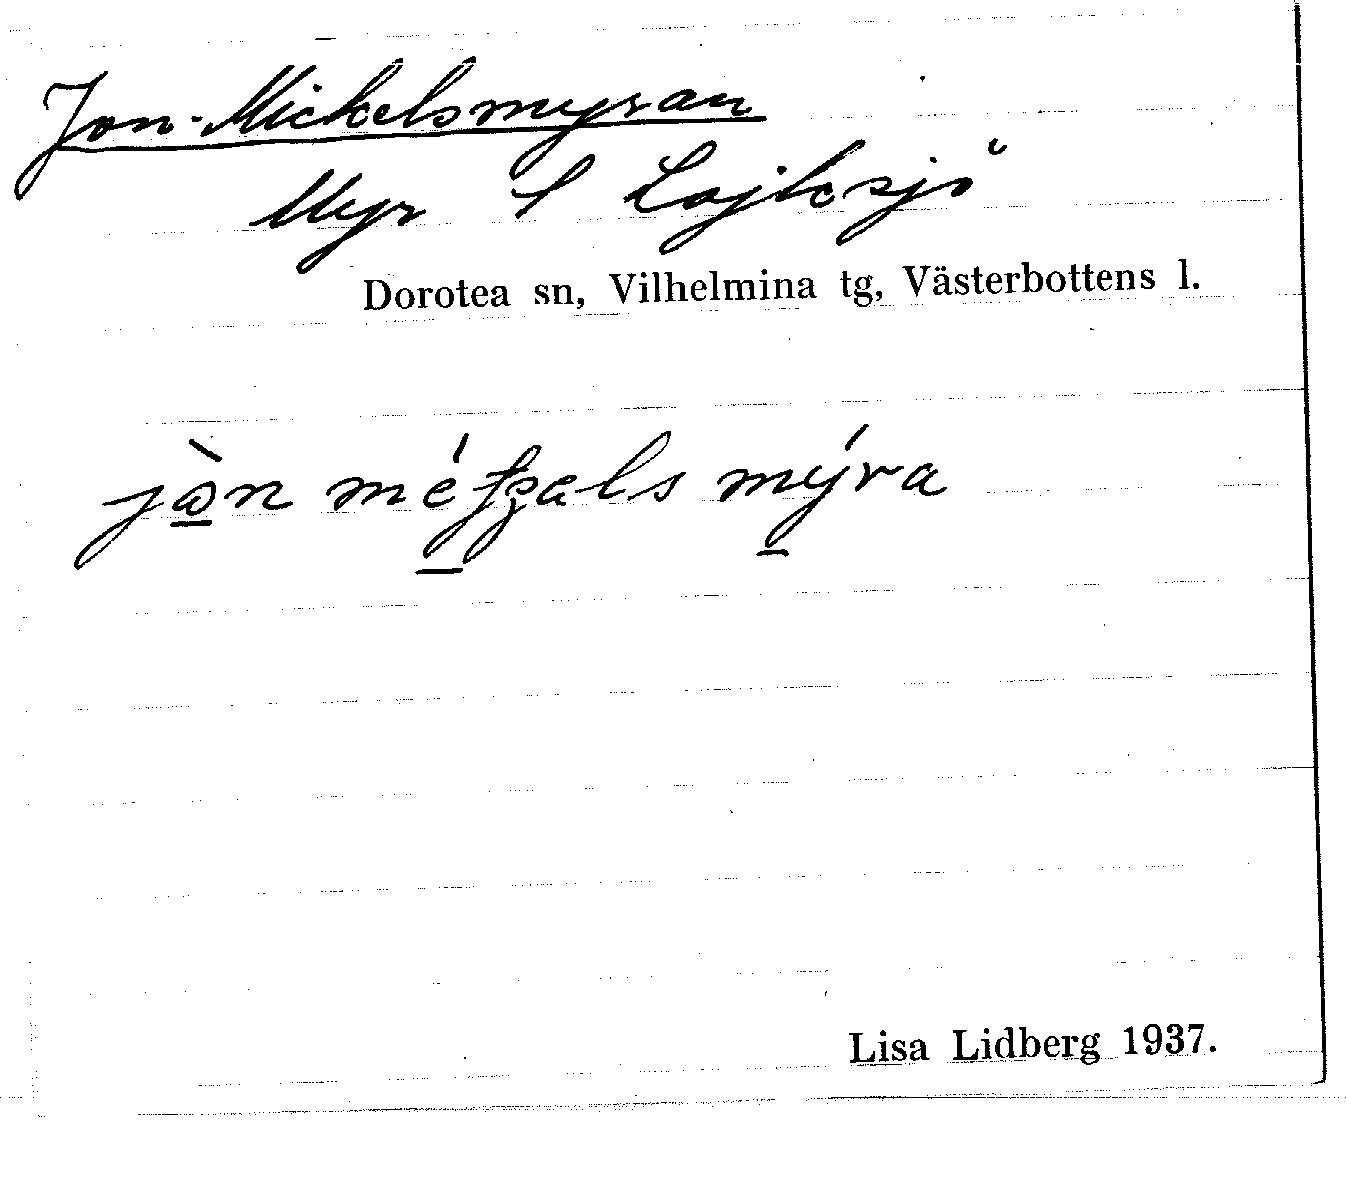 Jon-Mickelsmyran
Myr S Lajksjö
Dorotea sn, Vilhelmina tg, Västerbottens l.
mýra
Lisa Lidberg 1937.